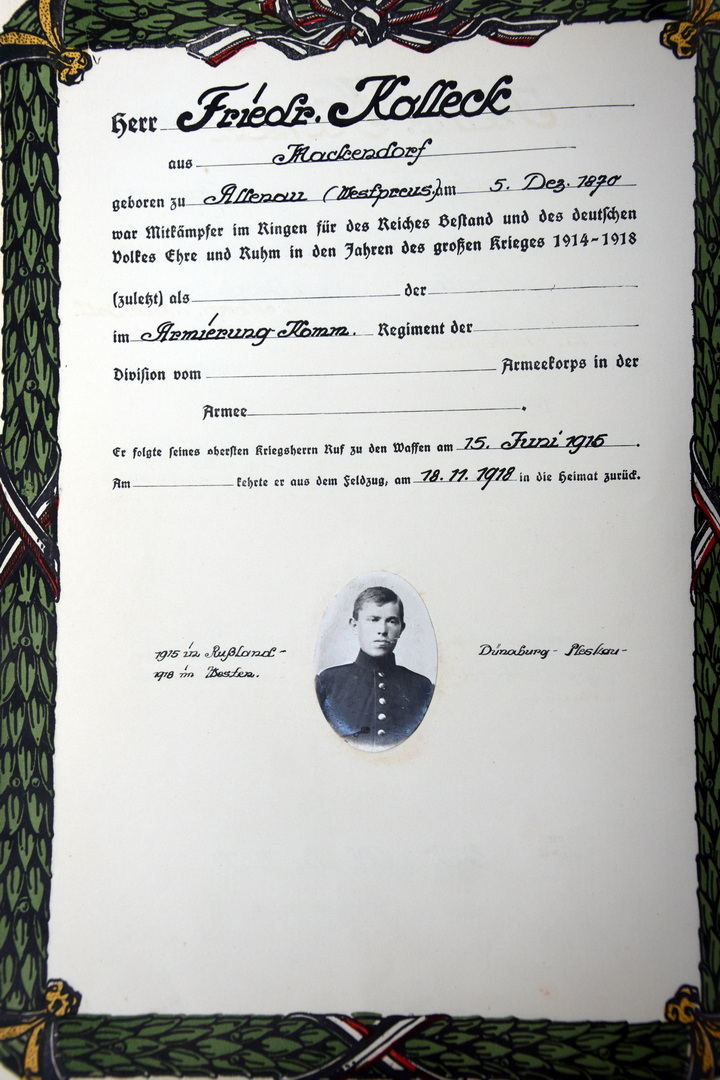 Herr Friedr. Kalleck
aus Mackendorf
geboren zu Altenau (Westpreus.) am 5. Dez. 1870
war Mitkämpfer im Ringen für des Reiches Bestand und des deutschen
Volkes Ehre und Ruhm in den Jahren des großen Krieges 1914-1918
(zuletzt) als der
im Armierung Komm. Regiment der
Division vom Armeekorps in der
Armee .
Er folgte seines obersten Kriegsherrn Ruf zu den Waffen am 15. Juni 1915 .
Am kehrte er aus dem Feldzug, am 18. 11. 1918 in die Heimat zurück.
1915 in Rußland - Dünaburg - Pleskau -
1918 im Westen.